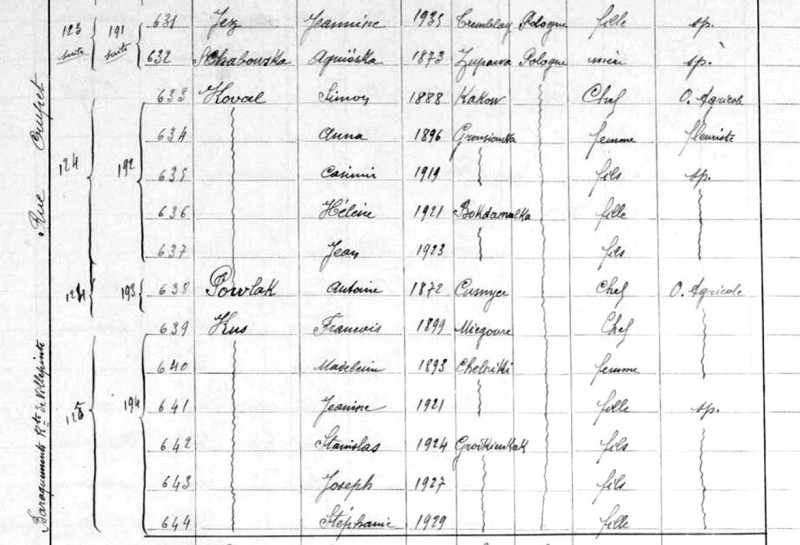 123 suite 191 suite 631 Jez Jeannine 1935 Tremblay Pologne fille sp.
632 Agniéska 1873 Zuparva Pologne mère sp.
633 Koval Simon 1888 Kakow Chef O. Agricole
634 Anna 1896 femme fleuriste
124 192 635 Casimir 1919 fils sp.
636 Hélène 1921 fille
637 Jean 1923 fils
193 638 Powlak Antoine 1872 Chef O. Agricole
639 Kus Francois 1899 Chef
640 Madeleine 1893 femme
125 194 641 Jeanine 1921 fille sp.
642 Stanislas 1924 fils
643 Joseph 1927 fils
644 Stéphanie 1929 fille
Rue Crupet
Baraquements Rte de Villepinte